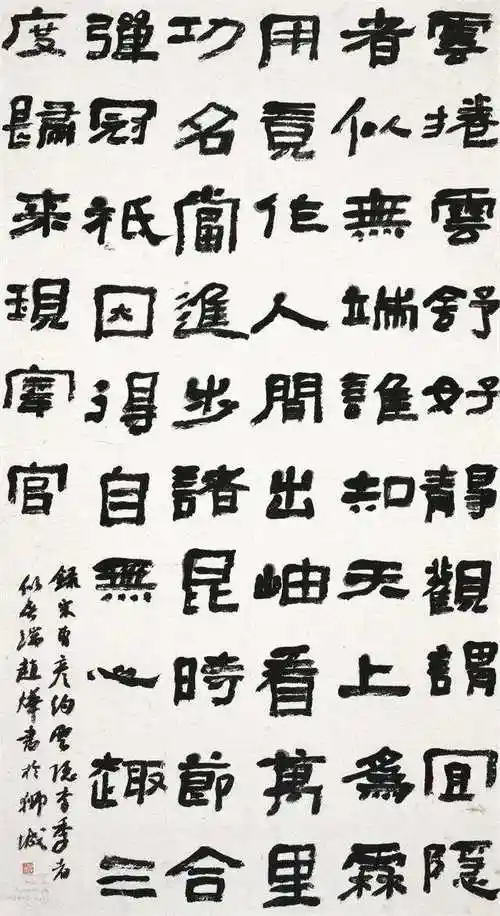 雲捲雲舒好靜觀謂宜隱
者似無端誰知天上為霖
用竟作人間出岫看萬里
功名當進步諸昆時節合
彈冠祇因得自無心趣三
度歸來現宰官
錄宋曹彥約雲隱有季者
似無端趙燁書於獅城